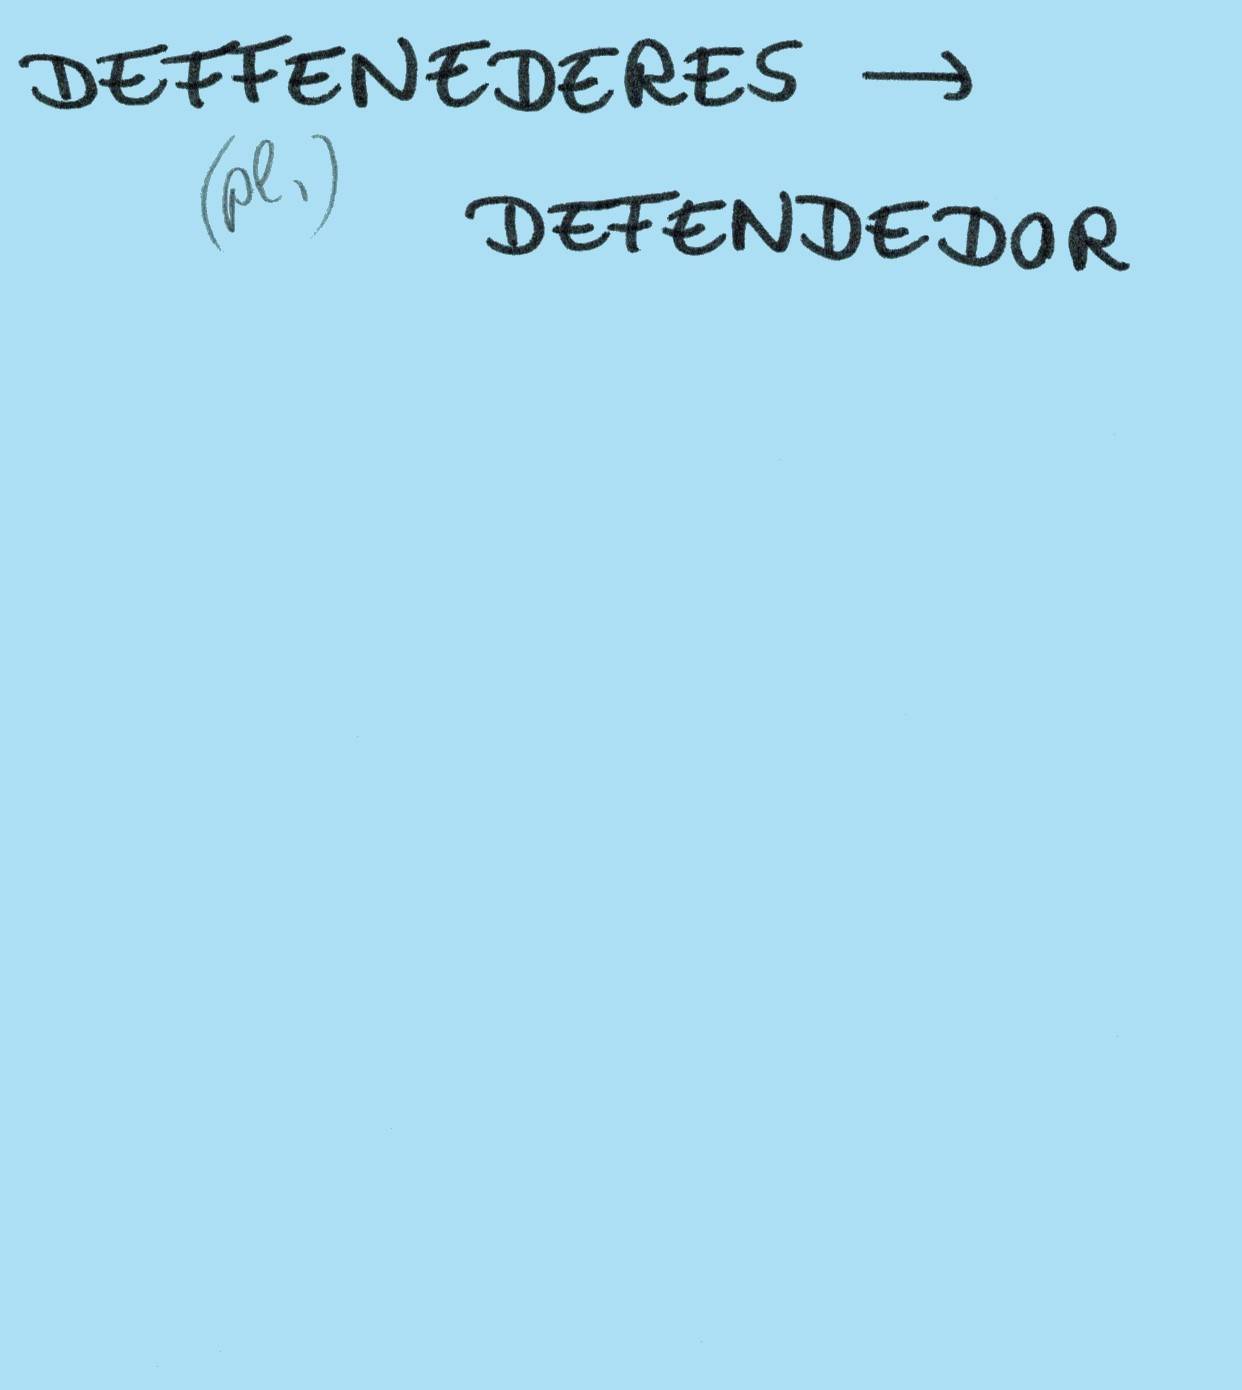 DEFFENEDERES →
(pl.)
DEFENDEDOR